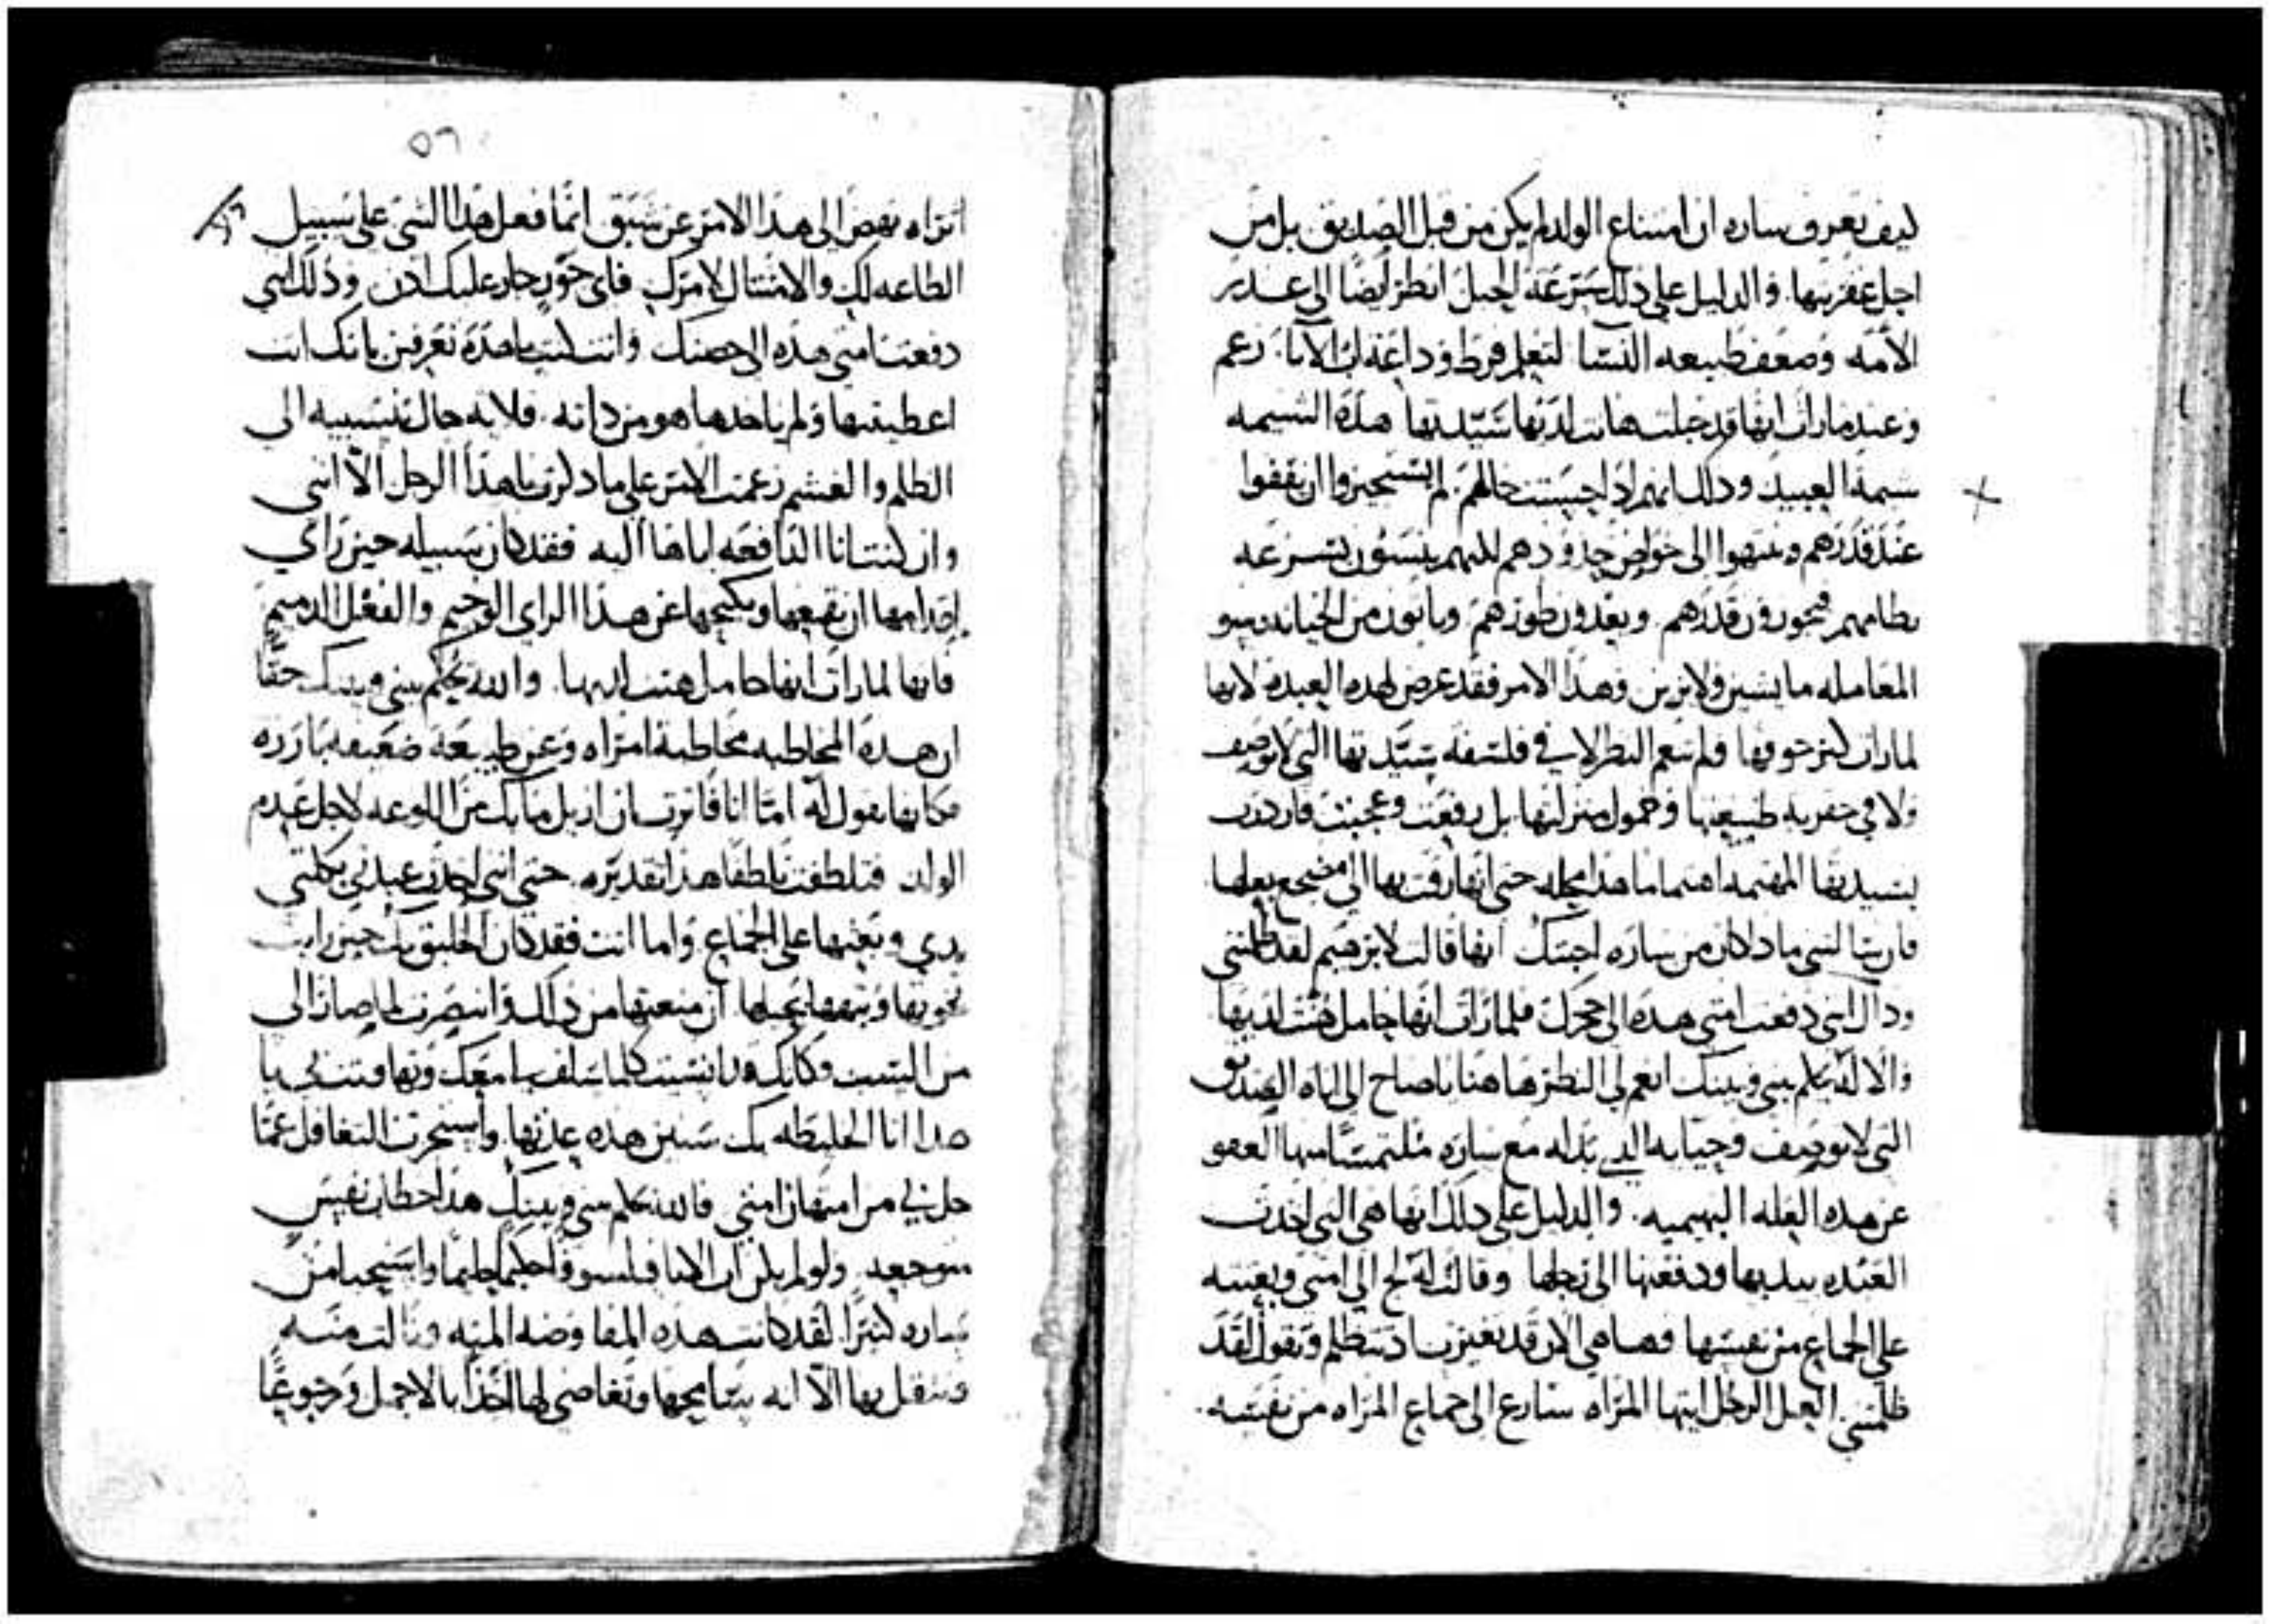 كيف تعرف ساره ان امتناع الولد لم يكن من قبل الصديق بل من
اجل عقريتها والدليل على ذلك سرعة الحبل انظر ايضا الى غدر
الأمه وضعف طبيعه النسا لتعلم فرط وداعة اب الآبا زعم
وعند ما رات انها قد حبلت هانت لديها سيدتها هذه الشيمه
شيمة العبيد وذلك انهم اذا حسنت حالهم لم يستجيزوا ان يقفوا
عند قدرهم وينتهوا الى خواص حدودهم لكنهم ينسون بسرعه
نظامهم فيجوزون قدرهم ويعدون طورهم وياتون من الخيانه بسو
المعامله ما يشين ولا يزين وهذا الامر فقد عرض لهذه العبده لانها
لما رات كبر جوفها فلم تنعم النظر لا في فلسفة سيدتها التي لا توصف
ولا في حقريه طبيعتها وخمول منزلتها بل رفعت وعجبت فازدرت
بسيدتها المهتمه اهتماما هذا محله حتى انها زفت بها الى مضجع بعلها
فاريتا لشي ماذا كان من ساره اجبتك انها قالت لابرهيم لقد ظلمتني
وذاك انني دفعت امتي هذه الى حجرك فلما رات انها حامل هنت لديها
والاله يحكم بيني وبينك انعم لي النظر هاهنا يا صاح الى اناه الصديق
التي لا توصف وحيايه الذي بذله مع ساره ملتمسا منها العفو
عن هذه الفعله البهيميه والدليل على ذلك انها هي التي اخذت
العبده بيديها ودفعتها الى بعلها وقالت له لج الى امتي وبعثته
على الجماع من نفسها وها هي الان قد تغيرت اذ تتظلم وتقول لقد
ظلمتني العل الرجل ايتها المراه سارع الى جماع المراه من نفسه
٥٦
اتراه نهض الى هذا الامر عن شبق انما فعل هذا الشي على سبيل
الطاعه لك والامتثال لامرك فاي جور جار عليك اذن وذلك انني
دفعت امتي هذه الى حضنك وانت كنت يا هذه تعرفين بانك انت
اعطيتها ولم ياخذها هو من ذاته فلايه حال تنسبيه الى
الظلم والغشم زعمت الامر على ما ذكرت يا هذا الرجل الا انني
وان كنت انا الدافعه اياها اليه فقد كان سبيله حين راى
اقدامها ان يقمعها ويكبحها عن هذا الراي الوخيم والفعل الذميم
فانها لما رات انها حامل هنت لديها والله يحكم بيني وبينك حقا
ان هذه المخاطبه مخاطبة امراه وعن طبيعة ضعيفه بارزه
فكانها تقول له اما انا فاثرت ان ازيل ما بك من اللوعه لاجل عدم
الولد فتلطفت تلطفا هذا تقديره حتى انني اخذت عبدتي بكلتي
يدي وبعثتها على الجماع واما انت فقد كان الخليق بك حين رايت
نخوتها وتيهها بحبلها ان منعتها من ذلك وانتصرت لما صار الى
من السبب وكانك ونسيت كلما سلف معك ونهاونت بي يا
هذا انا الخليطه بك سنين هذه عدتها واستجزت التغافل عما
حل بي من امتهان امتي فالله يحكم بيني وبينك هذا خطاب نفس
متوجعه ولو لم يكن اب الابا فيلسوفا حكيما حليما واستحيا من
ساره كثيرا لقد كانت هذه المفاوضه المته ونالت منه
وثقل بها الا انه سامحها وتغاضى لها اخذا بالاجمل ورجوعا